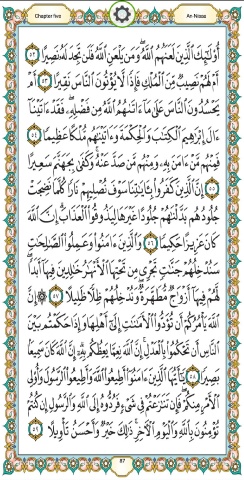 Chapter five An-Nissa
أُو۟لَـٰٓئِكَ ٱلَّذِينَ لَعَنَهُمُ ٱللَّهُ وَمَن يَلْعَنِ ٱللَّهُ فَلَن تَجِدَ لَهُۥ نَصِيرًا ٥٢
أَمْ لَهُمْ نَصِيبٌ مِّنَ ٱلْمُلْكِ فَإِذًا لَّا يُؤْتُونَ ٱلنَّاسَ نَقِيرًا ٥٣ أَمْ
يَحْسُدُونَ ٱلنَّاسَ عَلَىٰ مَآ ءَاتَىٰهُمُ ٱللَّهُ مِن فَضْلِهِۦ فَقَدْ ءَاتَيْنَآ
ءَالَ إِبْرَٰهِيمَ ٱلْكِتَـٰبَ وَٱلْحِكْمَةَ وَءَاتَيْنَـٰهُم مُّلْكًا عَظِيمًا ٥٤
فَمِنْهُم مَّنْ ءَامَنَ بِهِۦ وَمِنْهُم مَّن صَدَّ عَنْهُ وَكَفَىٰ بِجَهَنَّمَ سَعِيرًا
٥٥ إِنَّ ٱلَّذِينَ كَفَرُوا۟ بِـَٔايَـٰتِنَا سَوْفَ نُصْلِيهِمْ نَارًا كُلَّمَا نَضِجَتْ
جُلُودُهُم بَدَّلْنَـٰهُمْ جُلُودًا غَيْرَهَا لِيَذُوقُوا۟ ٱلْعَذَابَ إِنَّ ٱللَّهَ
كَانَ عَزِيزًا حَكِيمًا ٥٦ وَٱلَّذِينَ ءَامَنُوا۟ وَعَمِلُوا۟ ٱلصَّـٰلِحَـٰتِ
سَنُدْخِلُهُمْ جَنَّـٰتٍ تَجْرِى مِن تَحْتِهَا ٱلْأَنْهَـٰرُ خَـٰلِدِينَ فِيهَآ أَبَدًا
لَّهُمْ فِيهَآ أَزْوَٰجٌ مُّطَهَّرَةٌ وَنُدْخِلُهُمْ ظِلًّا ظَلِيلًا ٥٧ ۞ إِنَّ
ٱللَّهَ يَأْمُرُكُمْ أَن تُؤَدُّوا۟ ٱلْأَمَـٰنَـٰتِ إِلَىٰٓ أَهْلِهَا وَإِذَا حَكَمْتُم بَيْنَ
ٱلنَّاسِ أَن تَحْكُمُوا۟ بِٱلْعَدْلِ إِنَّ ٱللَّهَ نِعِمَّا يَعِظُكُم بِهِۦٓ إِنَّ ٱللَّهَ كَانَ سَمِيعًۢا
بَصِيرًا ٥٨ يَـٰٓأَيُّهَا ٱلَّذِينَ ءَامَنُوٓا۟ أَطِيعُوا۟ ٱللَّهَ وَأَطِيعُوا۟ ٱلرَّسُولَ وَأُو۟لِى
ٱلْأَمْرِ مِنكُمْ فَإِن تَنَـٰزَعْتُمْ فِى شَىْءٍ فَرُدُّوهُ إِلَى ٱللَّهِ وَٱلرَّسُولِ إِن كُنتُمْ
تُؤْمِنُونَ بِٱللَّهِ وَٱلْيَوْمِ ٱلْـَٔاخِرِ ذَٰلِكَ خَيْرٌ وَأَحْسَنُ تَأْوِيلًا ٥٩
87